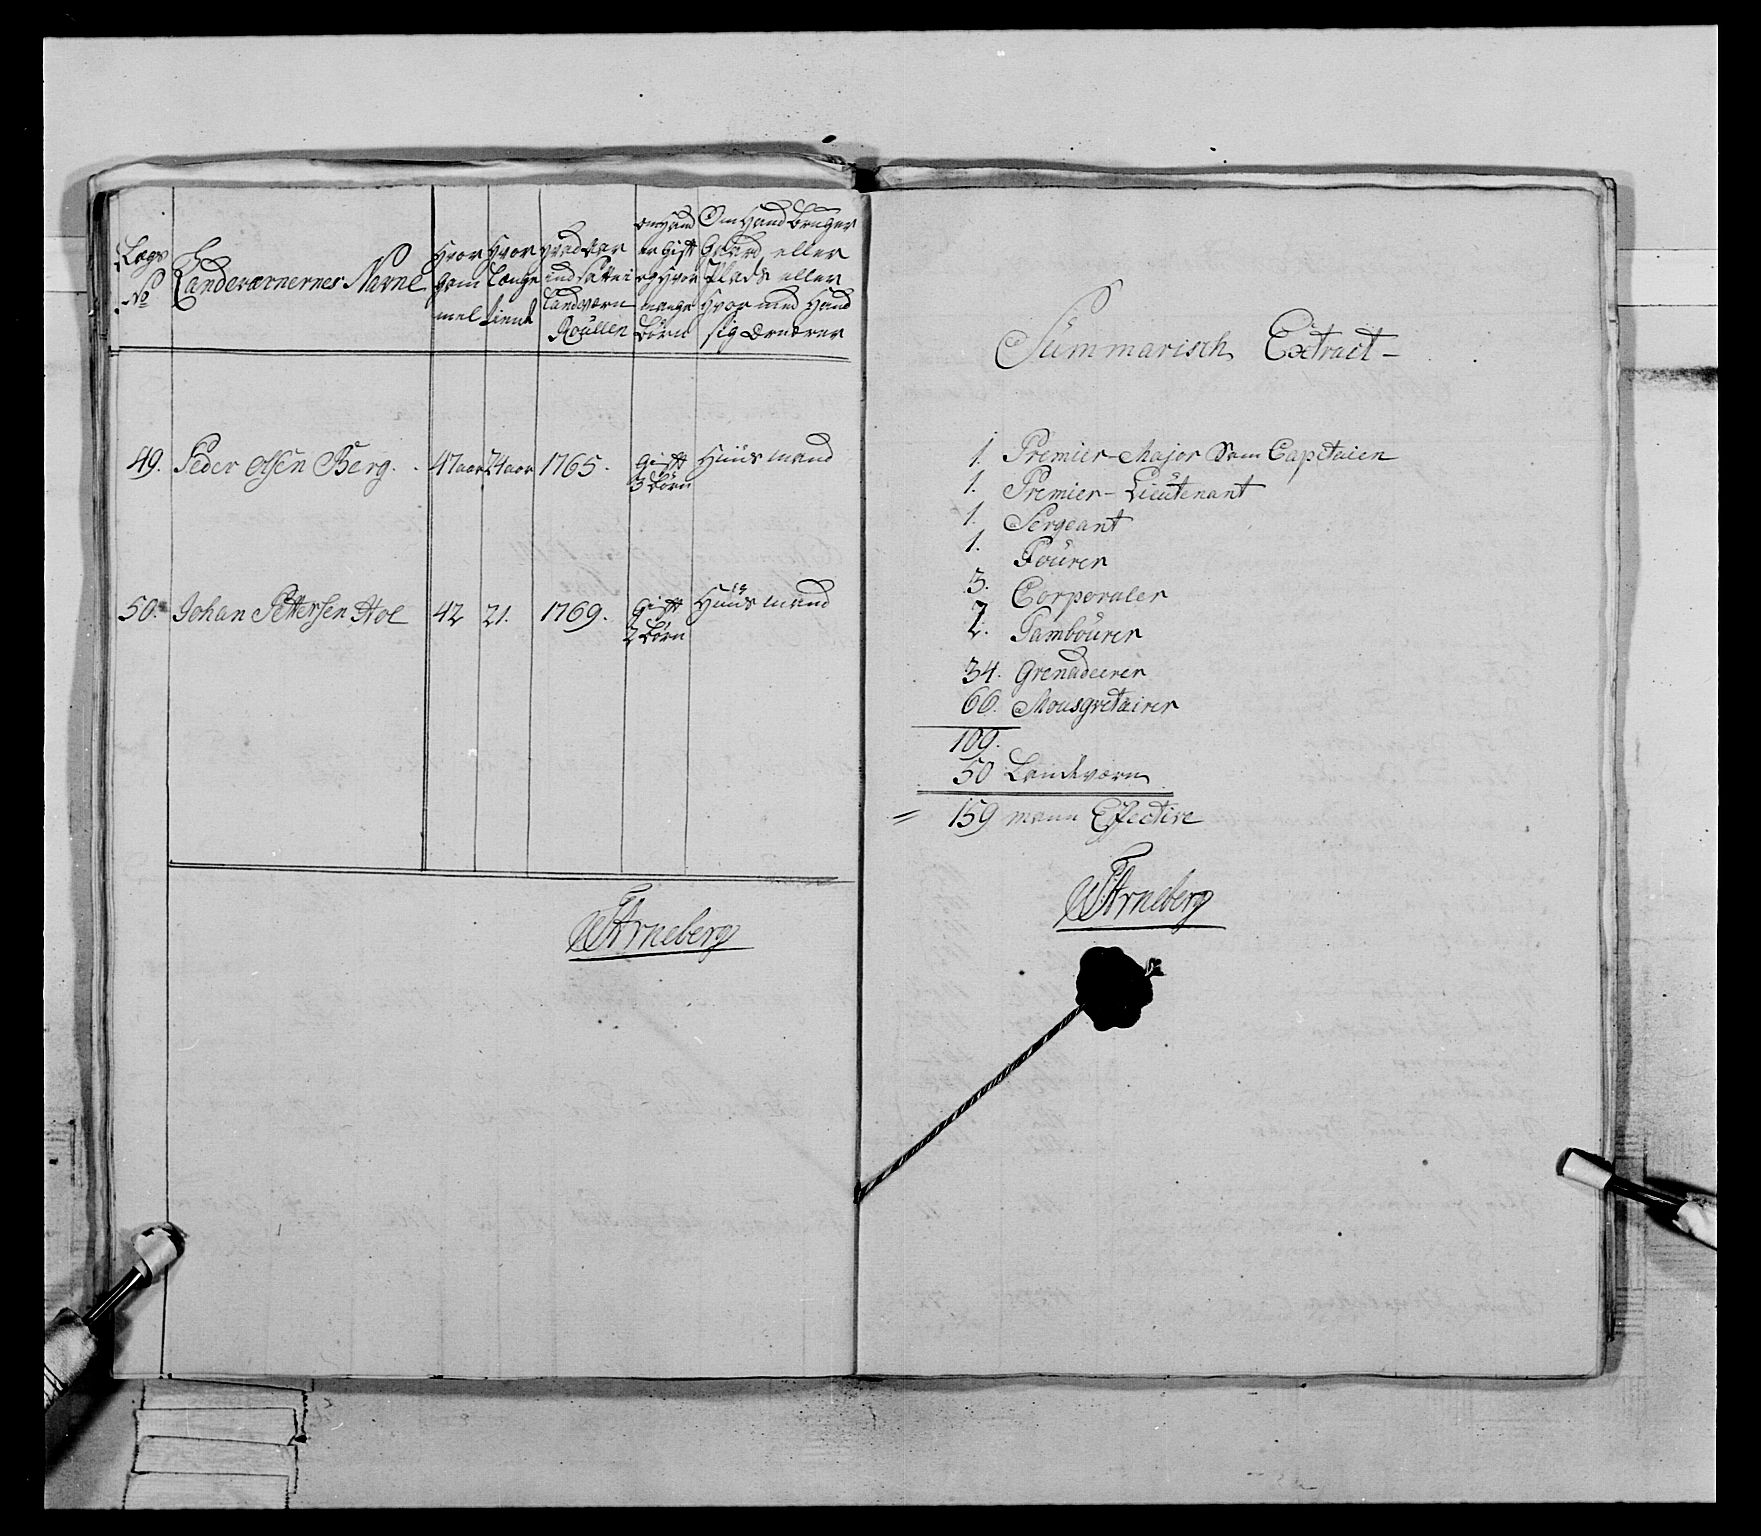 Lægs
No
Landeværnernes Navne
Hvor
gam
mel
Hvor
Længe
tient
Hvad Aar
ind satt i
Landværn
Roullen
Om Hand
er Gift
og Hvor
mange
Børn
Om Hand Bruger
Gaard eller
Plads eller
Hvormed Hand
sig Ernærer
49. Peder Olsen Berg. 47 aar 24 aar 1765. Gift 3 Børn Huusmand
50. Johan Pettersen Hol 42 21. 1769. Gift 2 Børn Huusmand
Arneberg
Summarisch Extract
1. Premier-Major Som Capitaien
1. Premier-Lieutenant
1. Sergeant
1. Fourer
3. Corporaler
2. Tambourer
34. Grenadeerer
66. Mousqvetairer
109.
50 Landværn
= 159 mann Effective
Arneberg